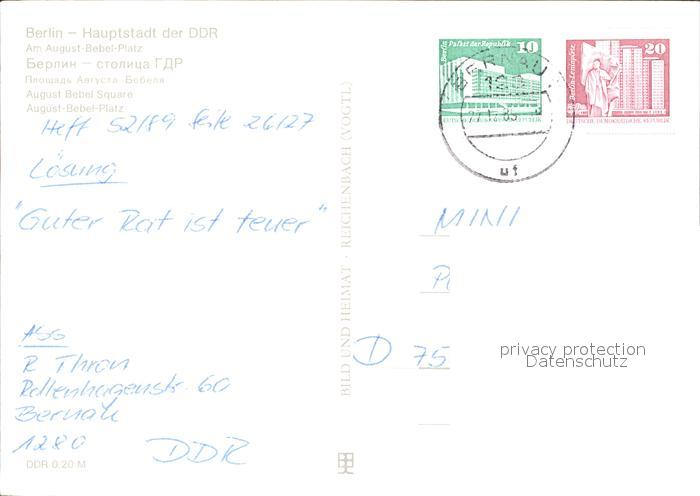 Berlin – Hauptstadt der DDR
Am August-Bebel-Platz
Берлин – столица ГДР
Площадь Августа Бебеля
August Bebel Square
August-Bebel-Platz
Heft 52/89 Seite 26/27
Lösung
"Guter Rat ist teuer"
Abs
R Thron
Rollenhagenstr. 60
Bernau
1280 DDR
DDR 0,20 M
BILD UND HEIMAT · REICHENBACH (VOGTL)
Berlin, Palast der Republik
10
DEUTSCHE DEMOKRATISCHE REPUBLIK
Berlin, Leninplatz
20
DEUTSCHE DEMOKRATISCHE REPUBLIK
BERNAU
128
uf
MINI
P
D 75
privacy protection
Datenschutz